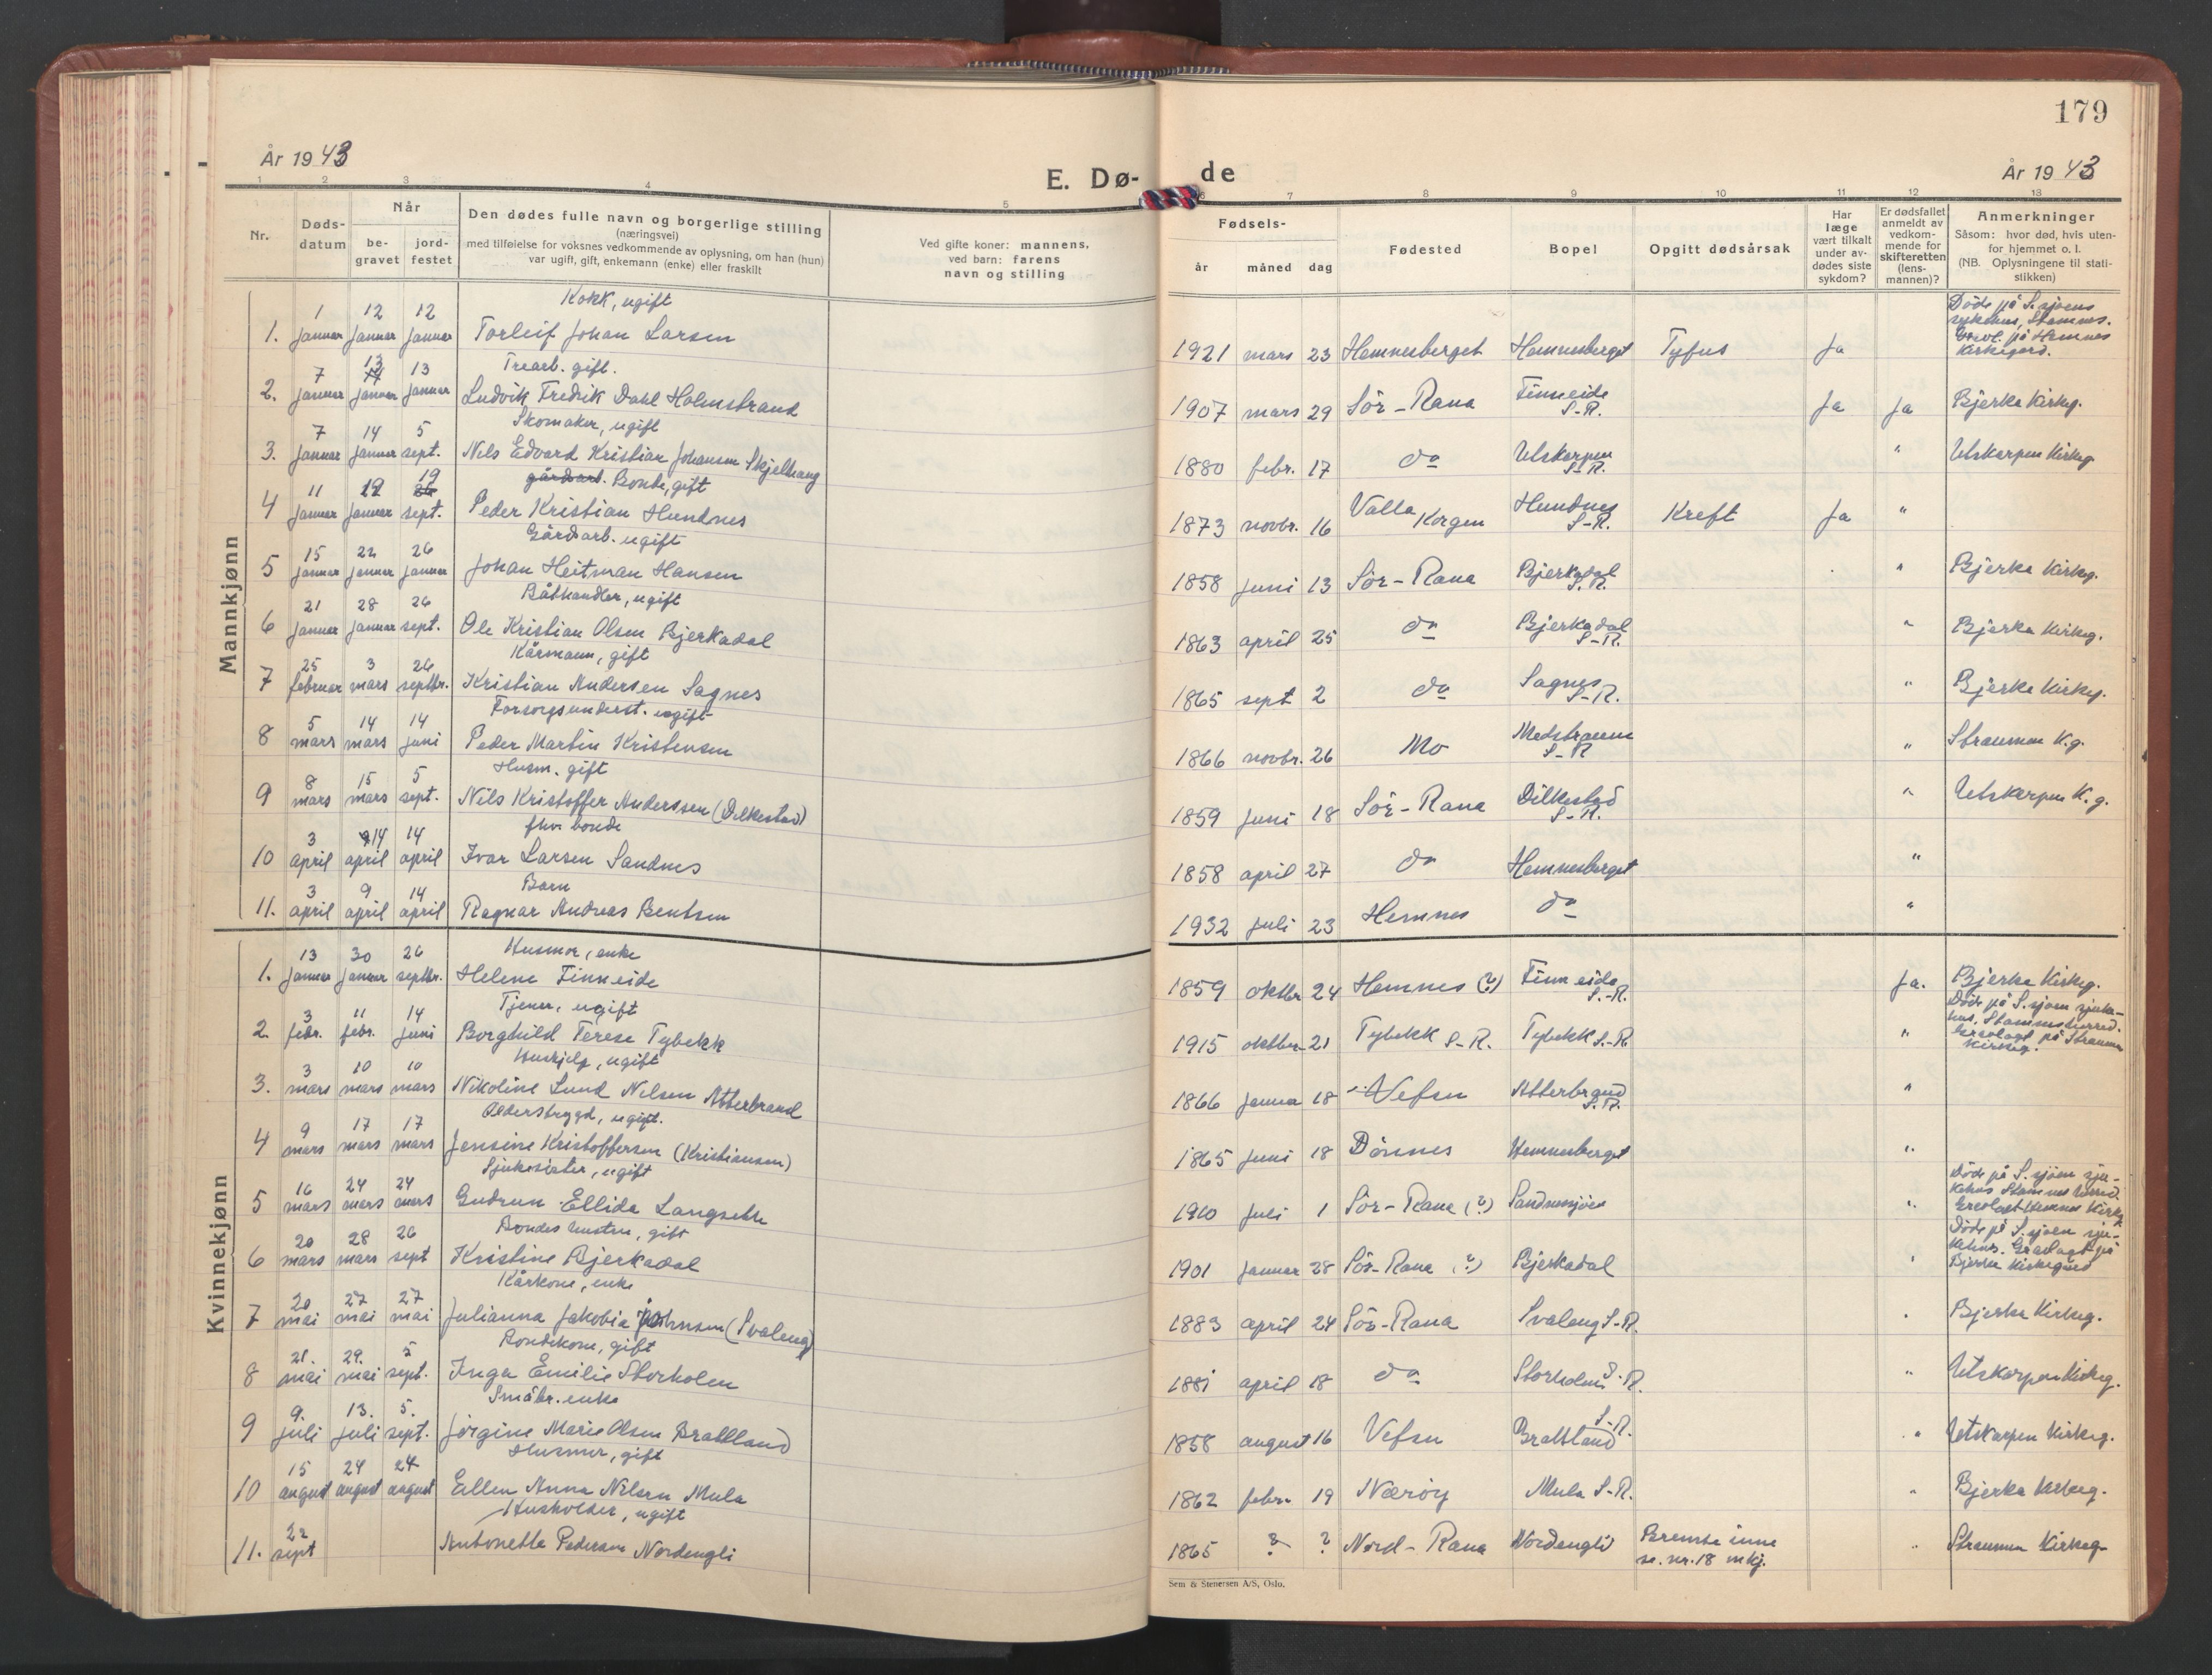 179
År 1943
E. Dø-
de
År 1943
1 2 3 4 5 6 7 8 9 10 11 12 13
Nr.
Døds-
datum
Når
be-
gravet
jord-
festet
Den dødes fulle navn og borgerlige stilling
(næringsvei)
med tilføielse for voksnes vedkommende av oplysning, om han (hun)
var ugift, gift, enkemann (enke) eller fraskilt
Ved gifte koner: mannens,
ved barn: farens
navn og stilling
Fødsels-
år måned dag
Fødested
Bopel
Opgitt dødsårsak
Har
læge
vært tilkalt
under av-
dødes siste
sykdom?
Er dødsfallet
anmeldt av
vedkom-
mende for
skifteretten
(lens-
mannen)?
Anmerkninger
Såsom: hvor død, hvis uten-
for hjemmet o. l.
(NB. Oplysningene til stati-
stikken)
Mannkjønn
Kokk, ugift
1. 1 januar 12 januar 12 januar Torleif Johan Larsen 1921 mars 23 Hemnesberget Hemnesberget Tyfus Ja
Døde på S.sjøens
sykehus, Stamnes.
Gravl. på Hemnes
Kirkegård.
Trearb. gift.
2. 7 januar 13 januar 13 januar Ludvik Fredrik Dahl Holmstrand 1907 mars 29 Sör-Rana Finneide S-R. Ja Ja Bjerka Kirkeg.
Skomaker, ugift
3. 7 januar 14 januar 5 sept. Nils Edvard Kristian Johansen Skjelhaug 1880 febr. 17 do Utskarpen S-R. " Utskarpen Kirkeg
gårdsarb. Bonde, gift
4 11 januar 19 januar 19 sept. Peder Kristian Hundnes 1873 novbr. 16 Valla Korgen Hundnes S-R. Kreft Ja "
Gårdsarb. ugift
5 15 januar 22 januar 26 januar Johan Heitman Hansen 1858 juni 13 Sör-Rana Bjerkadal S.R. " Bjerka Kirkeg.
Båthandler, ugift
6 21 januar 28 januar 26 sept. Ole Kristian Olsen Bjerkadal 1863 april 25 do Bjerkadal S-R. " Bjerka Kirkeg.
Kårmann, gift
7 25 februar 3 mars 26 septbr. Kristian Andersen Sagnes 1865 sept 2 do Sagnes S-R. " Bjerka Kirkeg.
Forsorgsunderst. ugift
8 5 mars 14 mars 14 juni Peder Martin Kristensen 1866 novbr. 26 Mo Medstraum S-R " Straumen K.g.
Husm. gift
9 8 mars 15 mars 5 sept. Nils Kristoffer Anderssen (Dilkestad) 1859 juni 18 Sör-Rana Dilkestad S-R. " Utskarpen K.g.
fhv. bonde
10 3 april 14 april 14 april Ivar Larsen Sandnes 1858 april 27 do Hemnesberget "
Barn
11. 3 april 9 april 14 april Ragnar Andreas Bentsen 1932 juli 23 Hemnes do "
Kvinnekjønn
Husmor, enke
1. 13 januar 30 januar 26 septbr. Helene Finneide 1859 oktbr 24 Hemnes (?) Finneide S.-R. Ja. Bjerka Kirkeg.
Tjener, ugift
2. 3 febr. 11 febr. 14 juni Borghild Terese Tybekk 1915 oktbr. 21 Tybekk S-R. Tybekk S-R "
Døde på S.sjøen sjuke-
hus, Stamnes herred.
Gravlagt på Straumen
Kirkeg.
Hushjelp, ugift
3. 3 mars 10 mars 10 mars Nikoline Lund Nilsen Atterbrand 1866 januar 18 Vefsn Atterbrand S.R. "
Alderstrygd, ugift.
4 9 mars 17 mars 17 mars Jensine Kristoffersen (Kristiansen) 1865 juni 18 Dönnes Hemnesberget "
Sjukesister, ugift
5 16 mars 24 mars 24 mars Gudrun Ellida Langseth 1910 juli 1 Sör-Rana (?) Sandnessjöen "
Døde på S.sjöen sju-
kehus Stamnes herred.
Gravlagt Hemnes Kirkg
Bondes hustru, gift
6 20 mars 28 mars 26 sept Kristine Bjerkadal 1901 januar 28 Sör-Rana (?) Bjerkadal "
Døde på S.sjöen sju-
kehus. Gravlagt på
Bjerka Kirkegård
Kårkone, enke
7 20 mai 27 mai 27 mai Julianna Jakobia Johnsen (Svaleng) 1883 april 24 Sör-Rana Svaleng S-R. " Bjerka Kirkeg.
Bondekone, gift
8 21. mai 29. mai 5 sept. Inga Emilie Storholm 1881 april 18 do Storholmen S-R. " Utskarpen Kirkeg.
Småbr. enke
9 9. juli 13. juli 5. sept. Jörgine Marie Olsen Brattland 1858 august 16 Vefsn Brattland S-R. " Utskarpen Kirkeg.
Husmor, gift
10 15 august 24 august 24 august Ellen Anna Nilsen Mula 1862 febr. 19 Næröy Mula S-R. " Bjerka Kirkeg.
Husholder, ugift
11. 22 sept Antonette Pedersen Nordengli 1865 ? ? Nord-Rana Nordengli Bremte inne
se nr. 18 mkj. " Straumen Kirkeg
Sem & Stenersen A/S, Oslo.